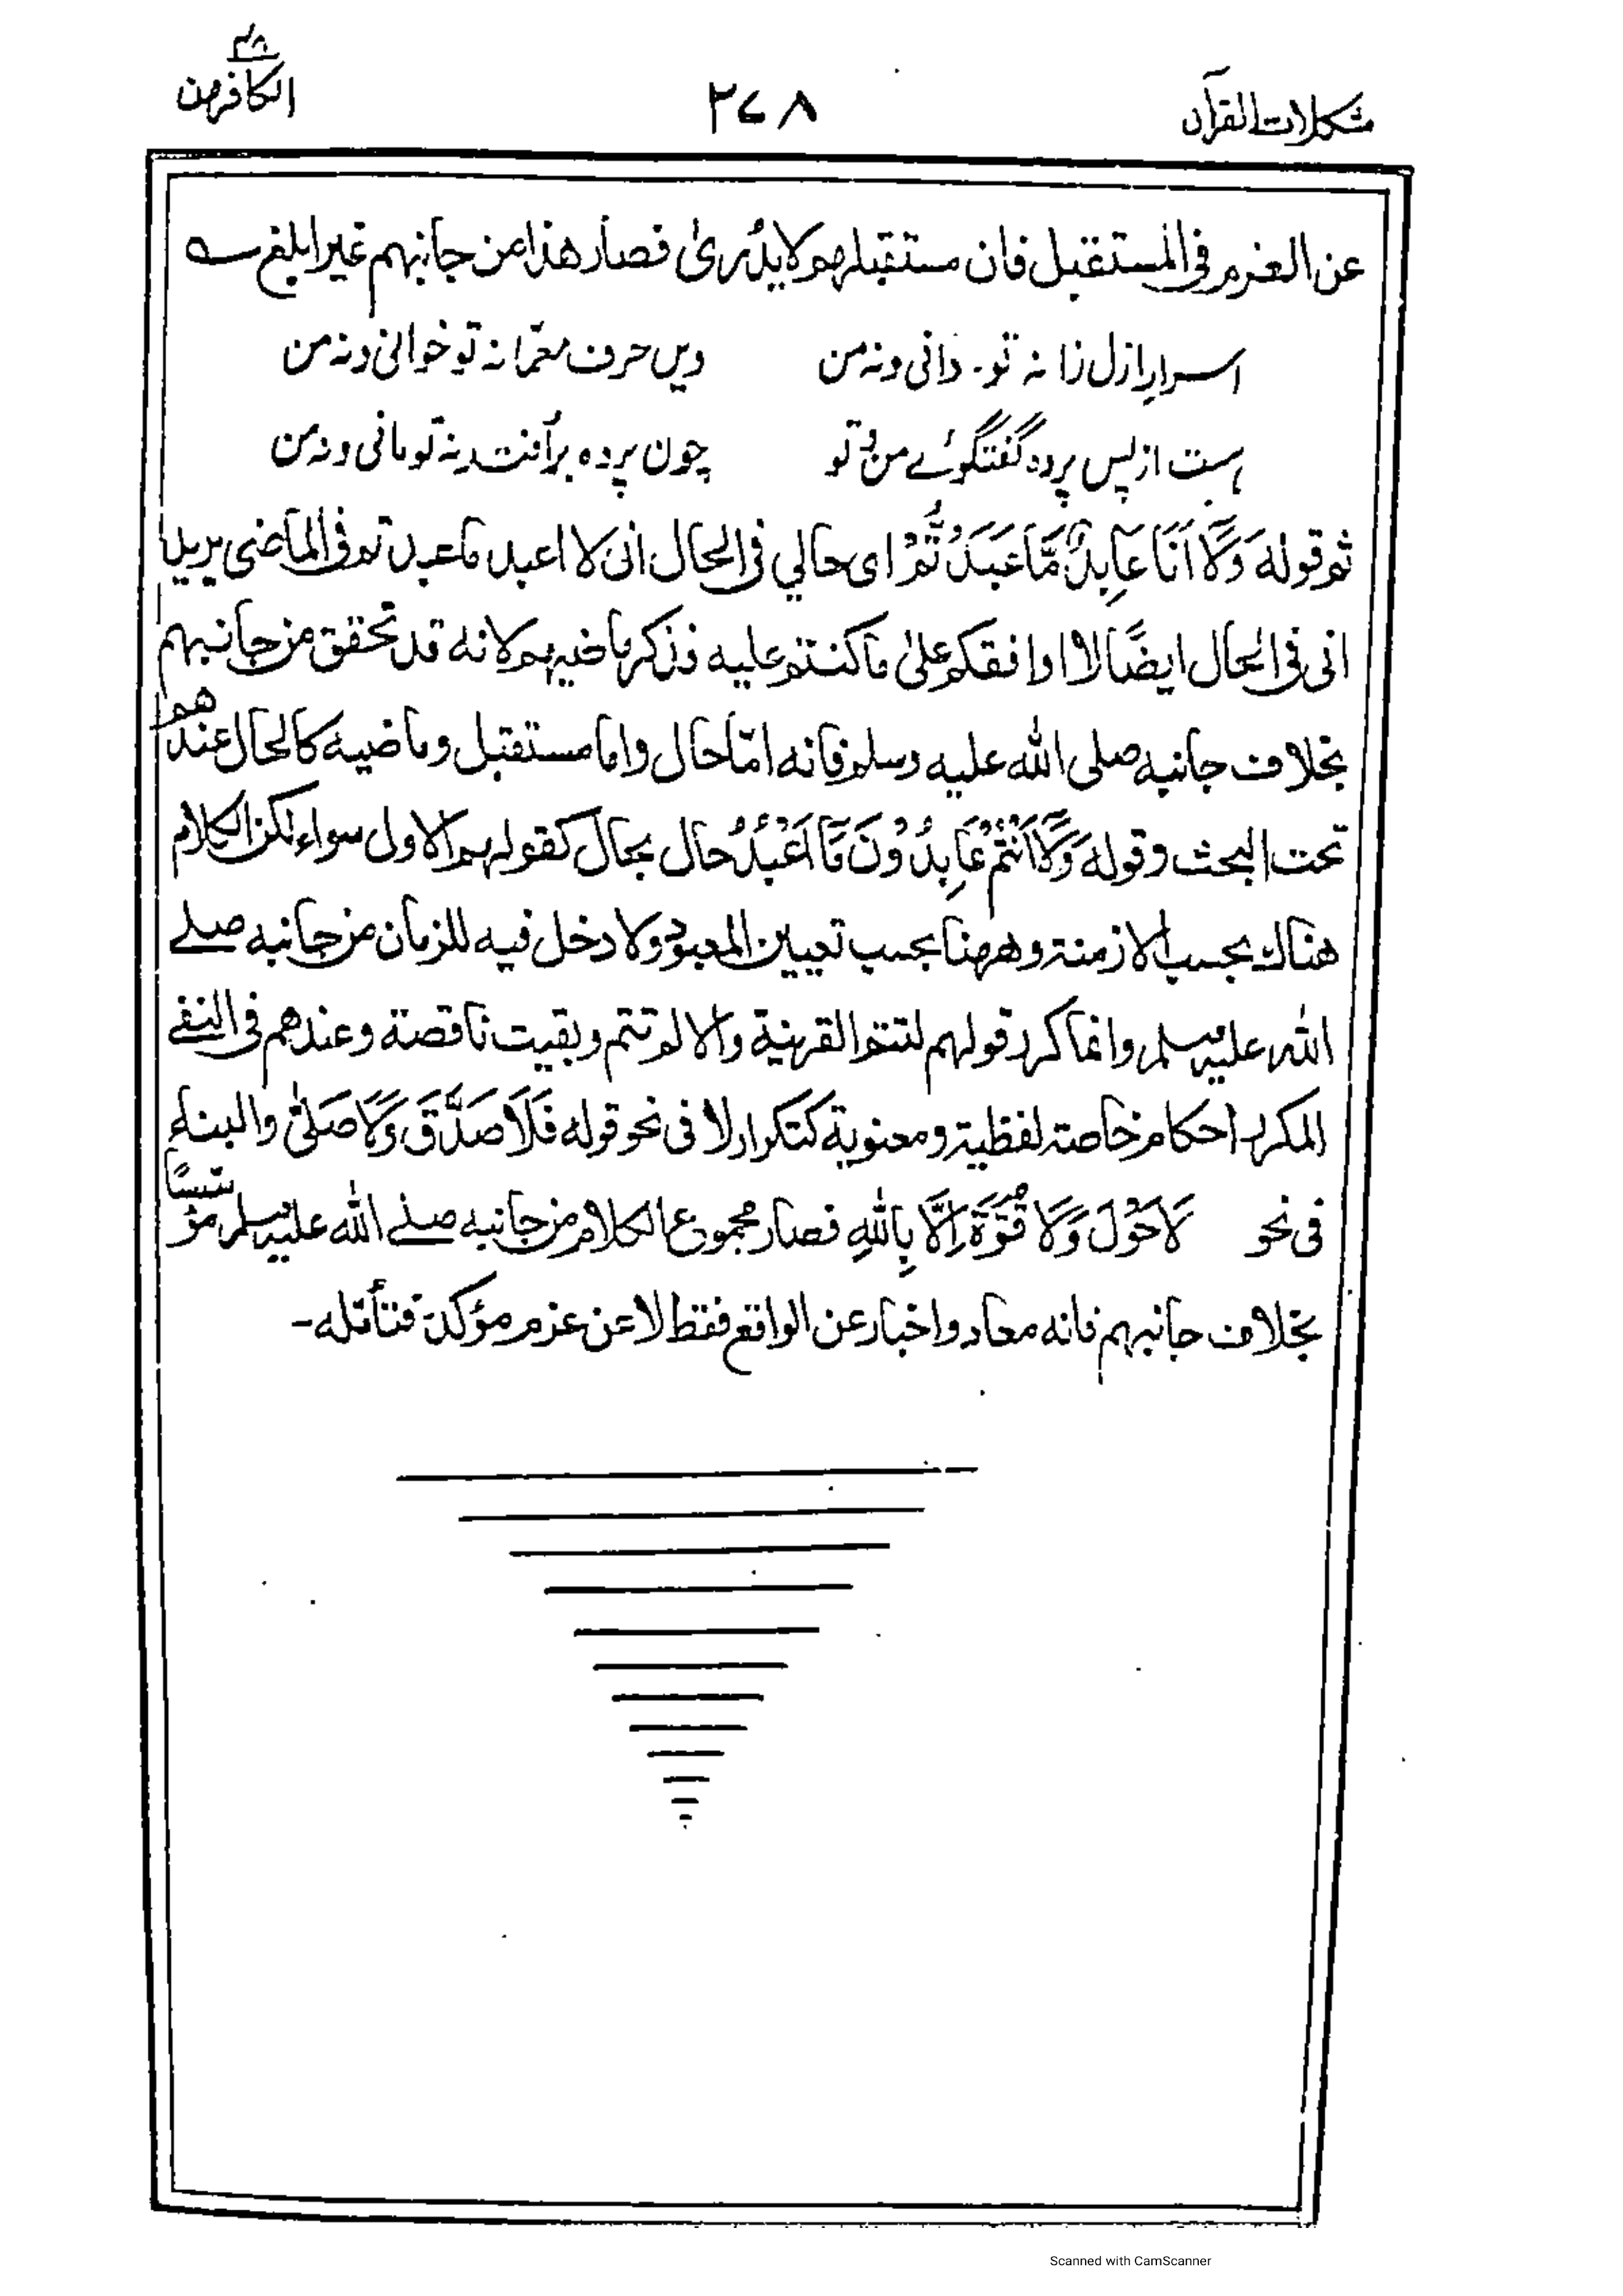 مشکلات القرآن
۲۷۸
الکافرون
عن العزم فی المستقبل فان مستقبلهم لا یدری فصار هذا من جانبهم غیر ابلغ ؎
اسرارِ ازل را نه تو دانی و نه من
ویں حرف معمّا نه تو خوانی و نه من
هست از پس پرده گفتگوئے من و تو
چون پرده برافتد نه تو مانی و نه من
ثم قوله وَلَآ اَنَا عَابِدٌ مَّا عَبَدْتُّمْ ای حالي فی الحال انی لا اعبد ما عبدتم فی الماضی یرید
انی فی الحال ایضًا لا اوافقکم علیٰ ما کنتم علیه فذکر ماضیهم لانه قد تحقق من جانبهم
بخلاف جانبه صلی الله علیه وسلم فانه امّا حال واما مستقبل وماضیه کالحال عندهم
تحت البحث وقوله وَلَآ اَنْتُمْ عَابِدُوْنَ مَآ اَعْبُدُ حال بحال کقولهم الاول سواء لکن الکلام
هناك بحسب الازمنة وههنا بحسب تعیین المعبود ولا دخل فیه للزمان من جانبه صلے
الله علیه وسلم وانما کرر قولهم لتتم القرینة والا لم تتم وبقیت ناقصة وعندهم فی النفے
المکرر احکام خاصة لفظیة ومعنویة کتکرار لا فی نحو قوله فَلَا صَدَّقَ وَلَا صَلّٰی والبناء
فی نحو لَا حَوْلَ وَلَا قُوَّةَ اِلَّا بِاللهِ فصار مجموع الکلام من جانبه صلے الله علیه وسلم مؤسسًا
بخلاف جانبهم فانه معاد واخبار عن الواقع فقط لا عن عزم مؤکد فتأمّله۔
Scanned with CamScanner